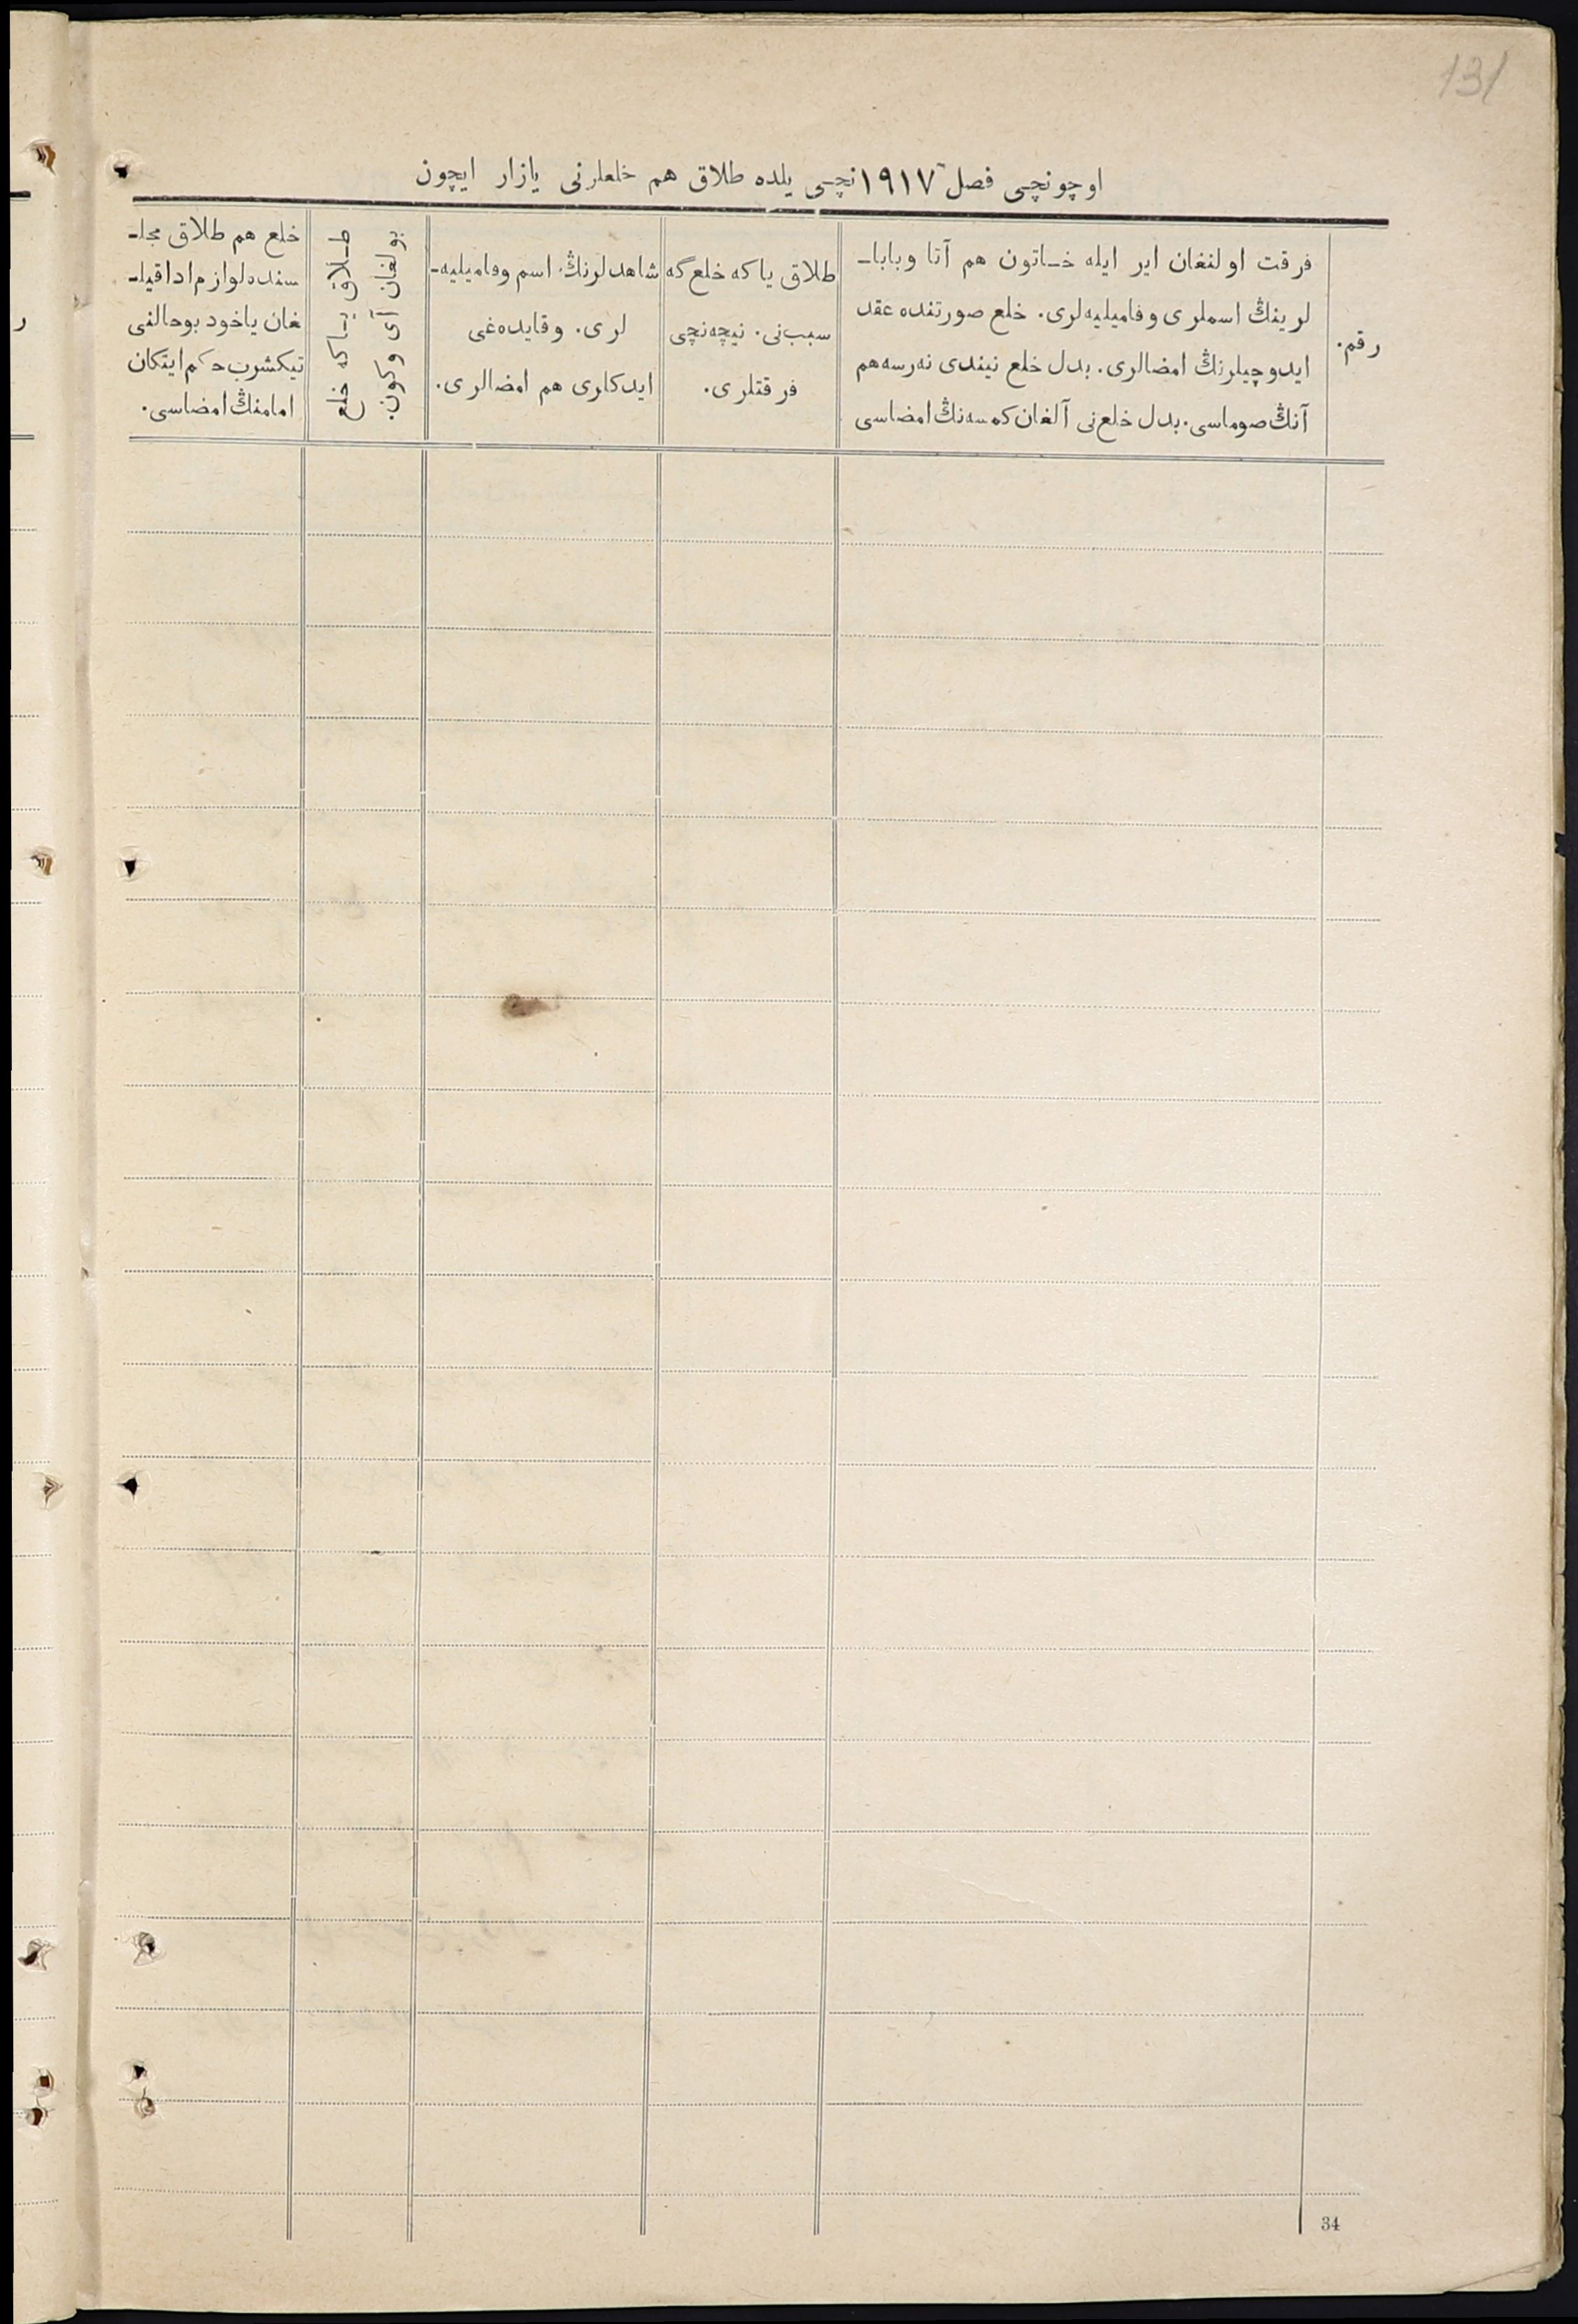 131
اوچونچی فصل ١٩١٧ نچی یلده طلاق هم خلعلرنی یازار ایچون
رقم.
فرقت اولنغان ایر ایله خـاتون هم آتا وبابا-
لرینڭ اسملری وفامیلیه‌لری. خلع صورتنده عقد
ایدوچیلرنڭ امضالری. بدل خلع نیندی نه‌رسه هم
آنڭ صوماسی. بدل خلع نی آلغان کمسه‌نڭ امضاسی
طلاق یا که خلع گه
سبب نی. نیچه‌نچی
فرقتلری.
شاهدلرنڭ اسم وفامیلیه-
لری. وقایده‌غی
ایدکلری هم امضالری.
طـلاق یـاکه خلع
بولغان آی وکون.
خلع هم طلاق مجلـ-
سنده لوازم ادا قیلـ-
غان یاخود بوحالنی
تیکشرب حکم ایتکان
امامنڭ امضاسی.
ر
34